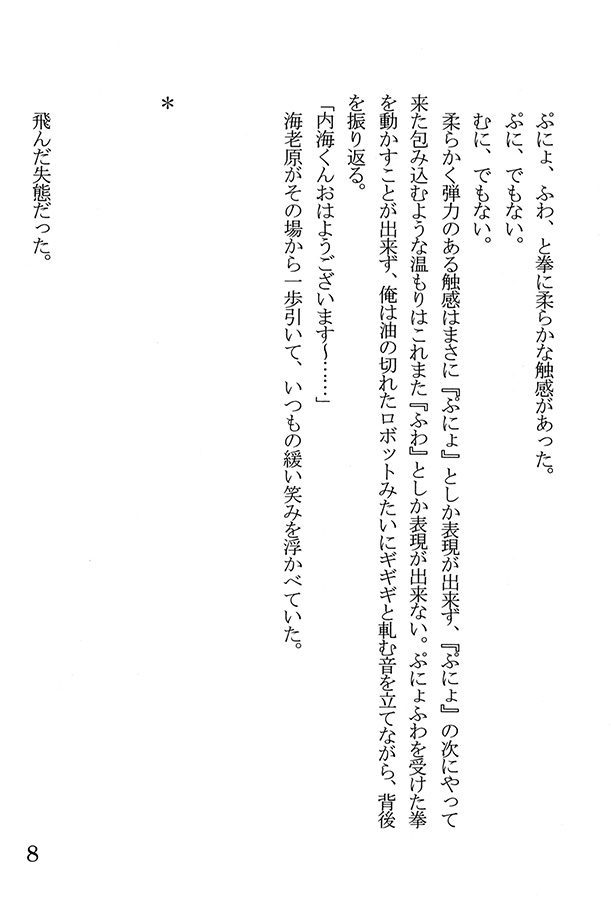 ぷにょ、ふわ、と拳に柔らかな触感があった。
　ぷに、でもない。
　むに、でもない。
　柔らかく弾力のある触感はまさに『ぷにょ』としか表現が出来ず、『ぷにょ』の次にやって
来た包み込むような温もりはこれまた『ふわ』としか表現が出来ない。ぷにょふわを受けた拳
を動かすことが出来ず、俺は油の切れたロボットみたいにギギギと軋む音を立てながら、背後
を振り返る。
「内海くんおはようございます～……」
　海老原がその場から一歩引いて、いつもの緩い笑みを浮かべていた。
＊
　飛んだ失態だった。
8